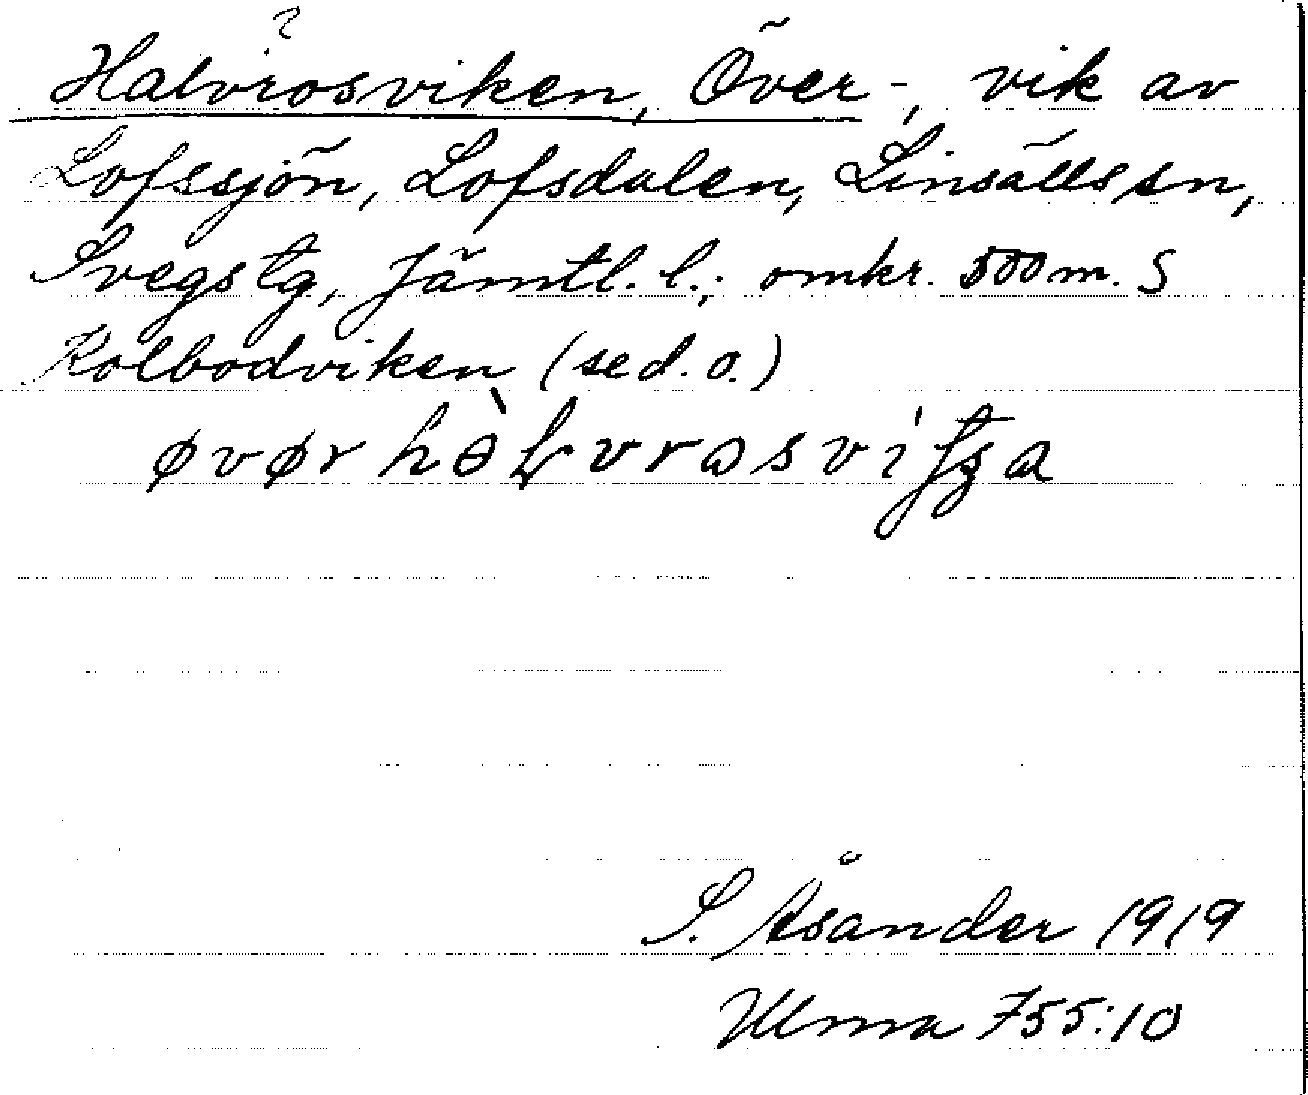 ?
Halvrosviken, Över-, vik av
Lofssjön, Lofsdalen, Linsälls sn,
Svegs tg, Jämtl. l.; omkr. 500 m. S
Kolbodviken (sed. o.)
øvør
S. Åsander 1919
Ulma 755:10